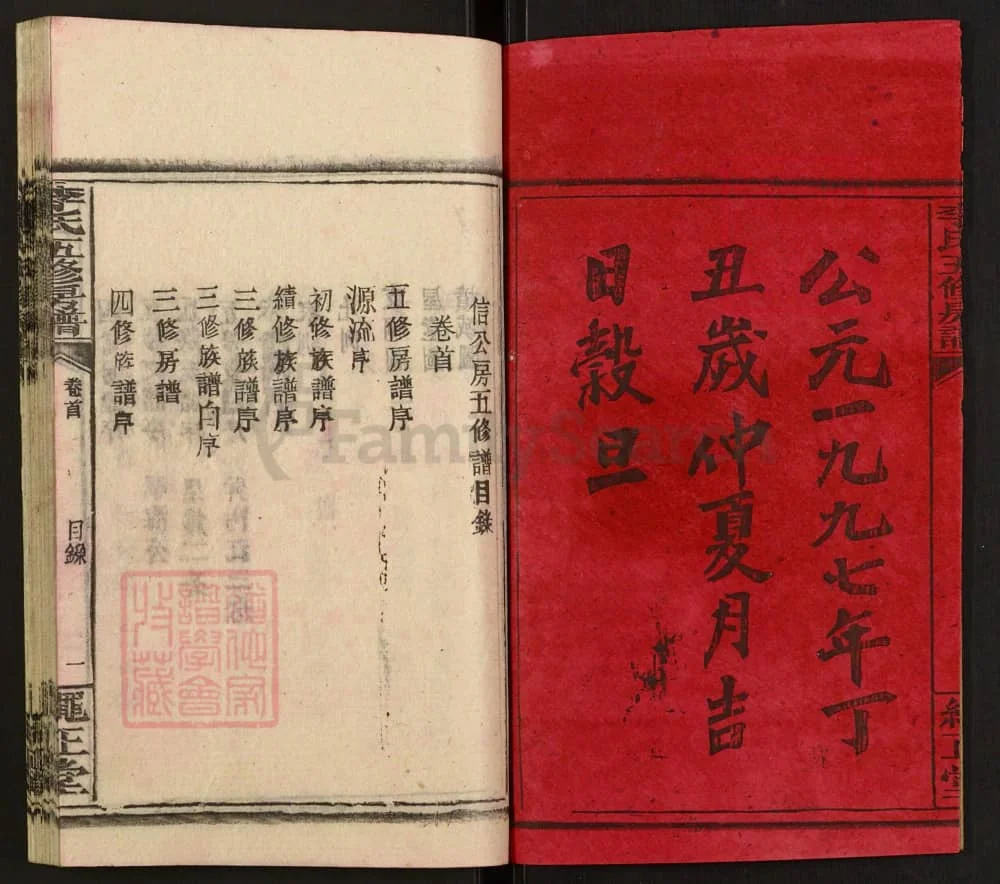 公元一九九七年丁
丑歲仲夏月吉
日穀旦
信公房五修譜目錄
卷首
五修房譜序
源流序
初修族譜序
續修族譜序
三修族譜序
三修族譜白序
三修房譜
四修族譜序
李氏五修房譜
卷首
目錄
一
李氏五修房譜
FamilySearch